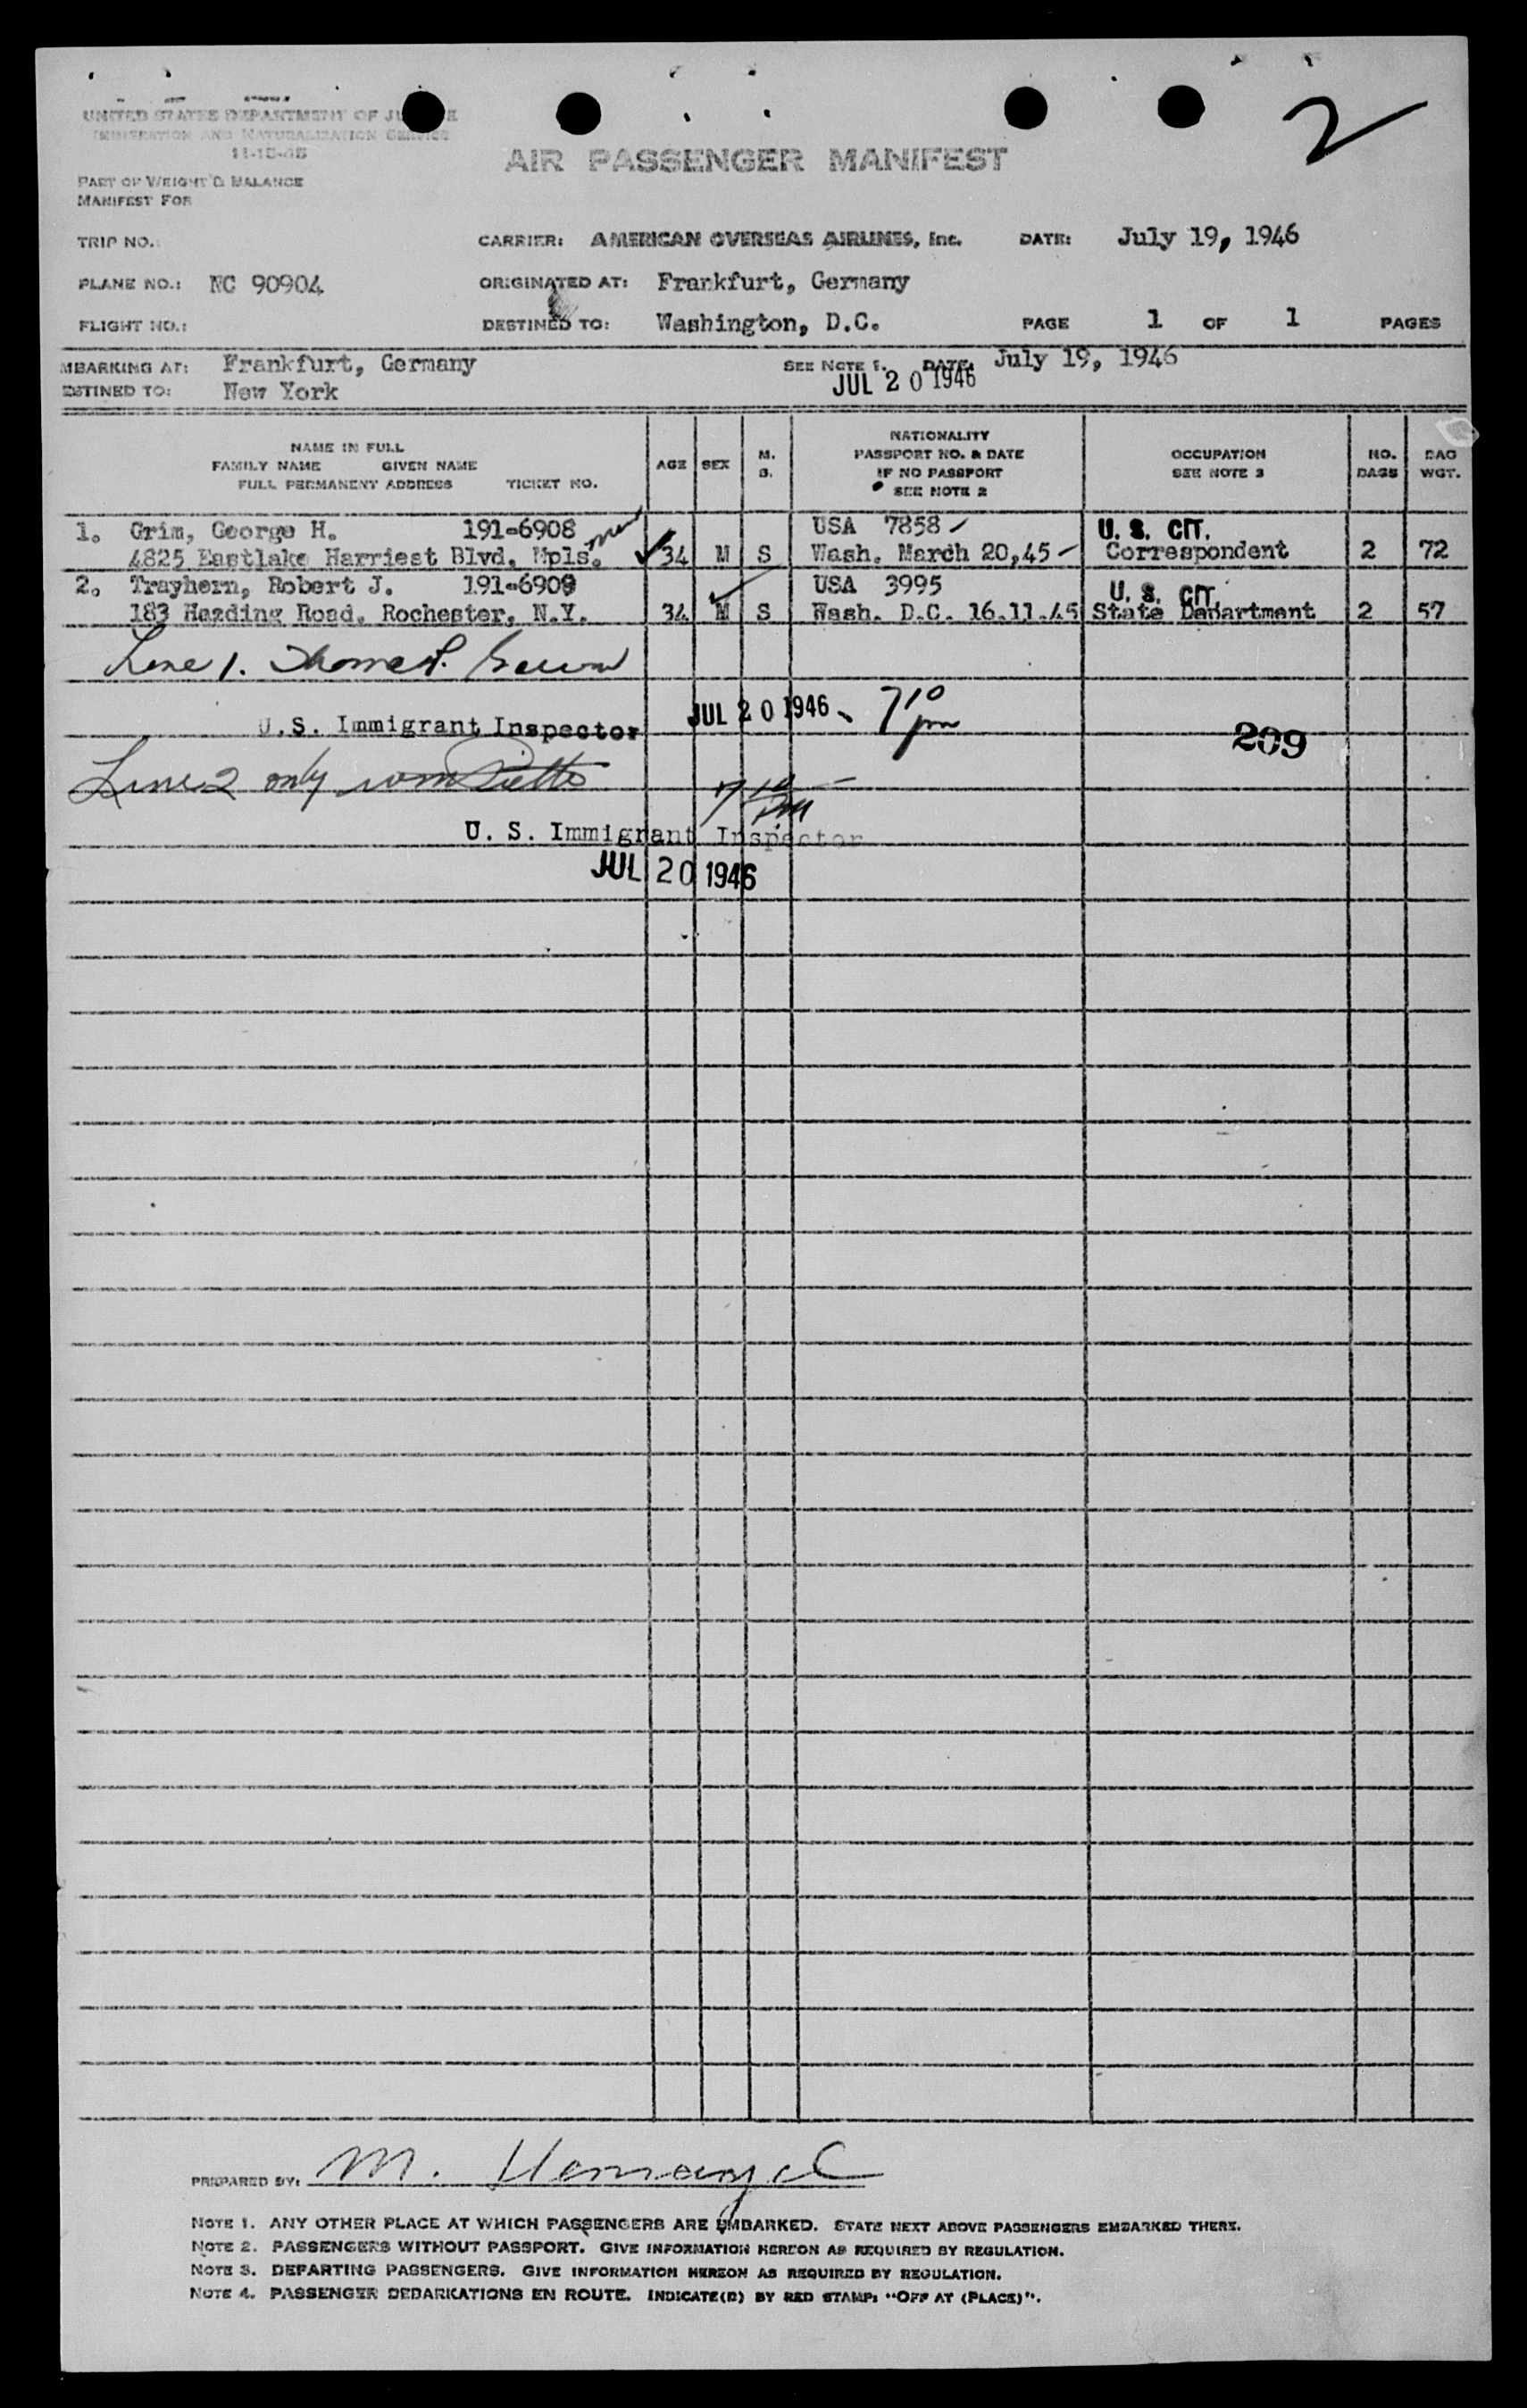 2
UNITED STATES DEPARTMENT OF JUSTICE
IMMIGRATION AND NATURALIZATION SERVICE
11-15-45
AIR PASSENGER MANIFEST
PART OF WEIGHT & BALANCE
MANIFEST FOR
TRIP NO.: CARRIER: AMERICAN OVERSEAS AIRLINES, Inc. DATE: July 19, 1946
PLANE NO.: NC 90904 ORIGINATED AT: Frankfurt, Germany
FLIGHT NO.: DESTINED TO: Washington, D.C. PAGE 1 OF 1 PAGES
MBARKING AT: Frankfurt, Germany SEE NOTE 1. DATE: July 19, 1946
ESTINED TO: New York JUL 20 1946
NAME IN FULL
FAMILY NAME GIVEN NAME
FULL PERMANENT ADDRESS TICKET NO. AGE SEX M. S. NATIONALITY PASSPORT NO. & DATE IF NO PASSPORT SEE NOTE 2 OCCUPATION SEE NOTE 3 NO. BAGS BAG WGT.
1. Grim, George H. 191-6908 USA 7858 U. S. CIT.
4825 Eastlake Harriest Blvd. Mpls. 34 M S Wash. March 20,45 Correspondent 2 72
2. Trayhern, Robert J. 191-6909 USA 3995 U. S. CIT.
183 Harding Road, Rochester, N.Y. 34 M S Wash. D.C. 16.11.45 State Department 2 57
Line 1.
U.S. Immigrant Inspector JUL 20 1946 7 10 pm
209
Line 2 only
7 10 PM
U. S. Immigrant Inspector
JUL 20 1946
PREPARED BY: M.
NOTE 1. ANY OTHER PLACE AT WHICH PASSENGERS ARE EMBARKED. STATE NEXT ABOVE PASSENGERS EMBARKED THERE.
NOTE 2. PASSENGERS WITHOUT PASSPORT. GIVE INFORMATION HEREON AS REQUIRED BY REGULATION.
NOTE 3. DEPARTING PASSENGERS. GIVE INFORMATION HEREON AS REQUIRED BY REGULATION.
NOTE 4. PASSENGER DEBARKATIONS EN ROUTE. INDICATE(D) BY RED STAMP: "OFF AT (PLACE)".